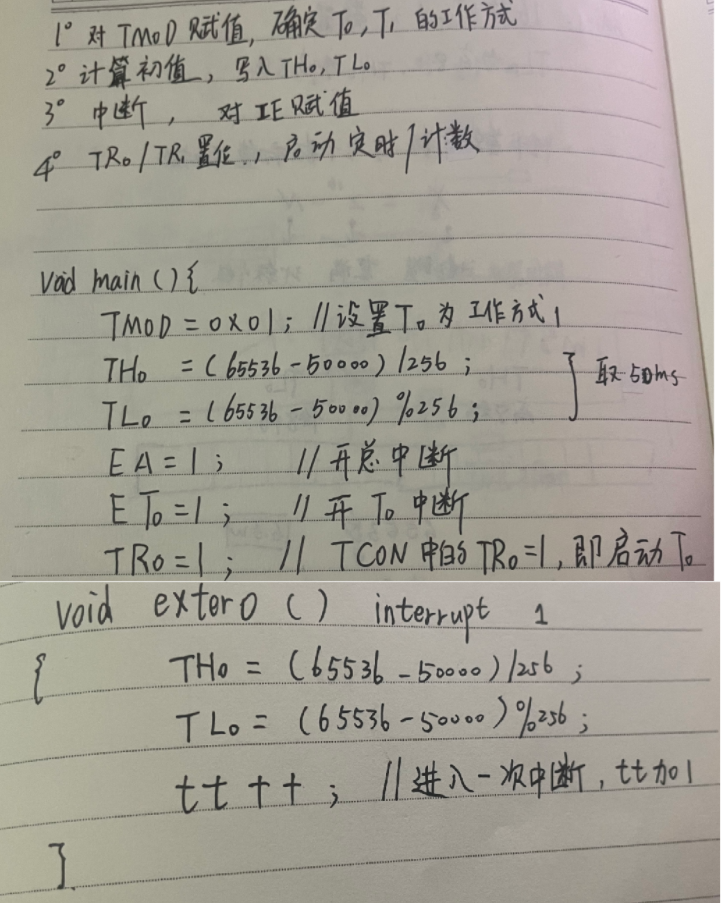 1° 对 TMOD 赋值, 确定 T0, T1 的工作方式
2° 计算初值, 写入 TH0, TL0
3° 中断, 对 IE 赋值
4° TR0/TR1 置位, 启动定时/计数
void main () {
TMOD = 0X01; //设置T0为工作方式1
TH0 = (65536-50000)/256;
取50ms
TL0 = (65536-50000)%256;
EA=1; //开总中断
ET0=1; //开T0中断
TR0=1; // TCON中的TR0=1,即启动T0
void exter0 () interrupt 1
{ TH0 = (65536-50000)/256;
TL0 = (65536-50000)%256;
tt++; //进入一次中断, tt加1
}